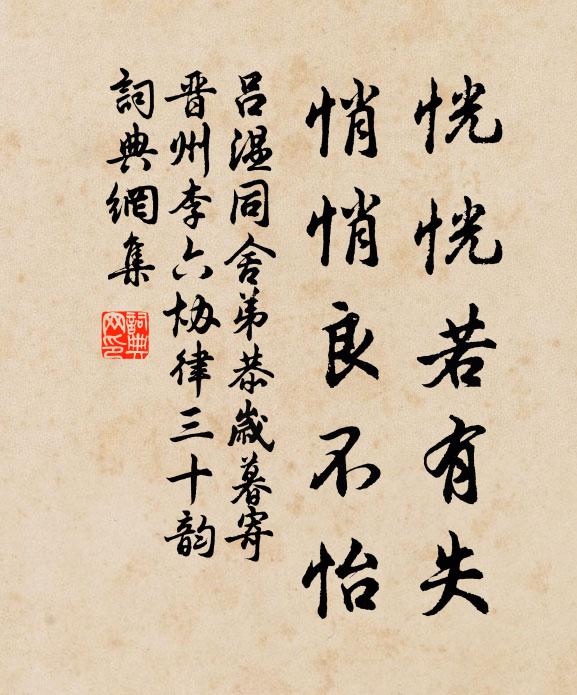 恍恍若有失
悄悄良不怡
吕溫同舍弟恭歲暮寄
晋州李六協律三十韵
詞典網集
詞典網印